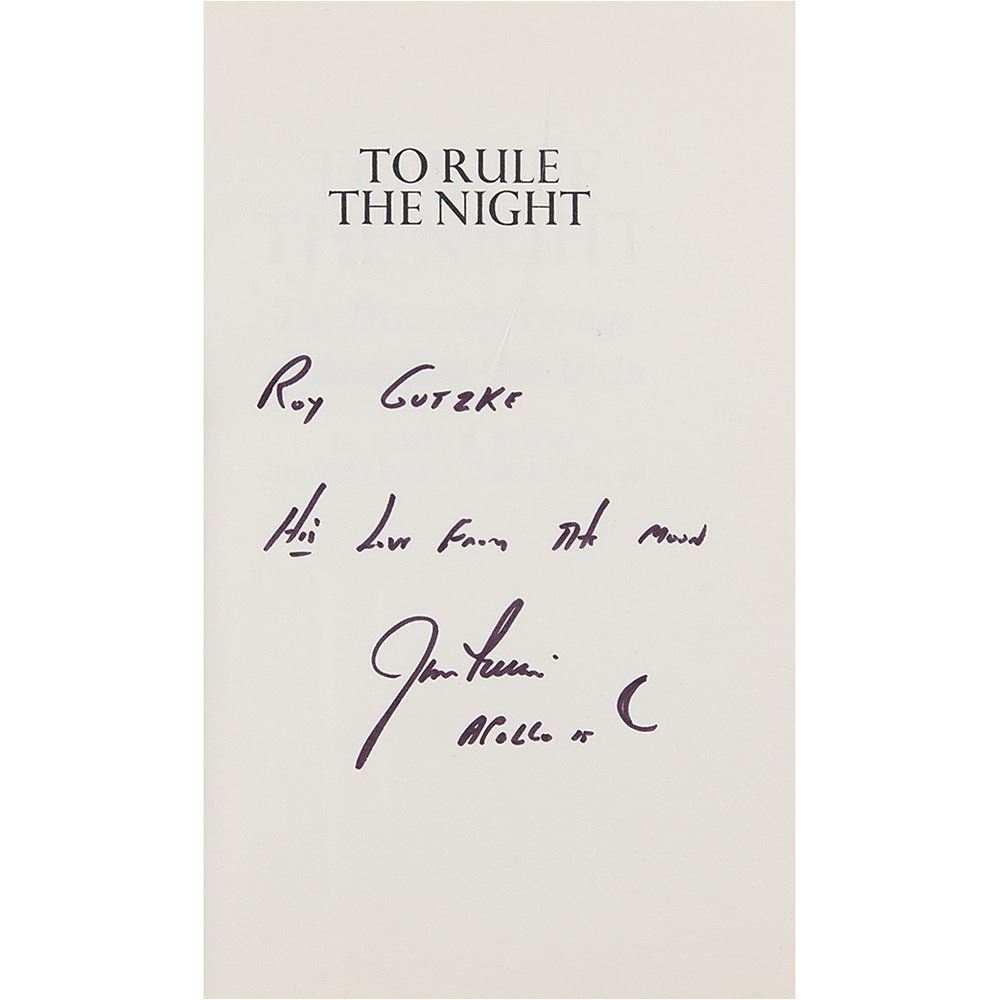 TO RULE
THE NIGHT
Roy GUTZKE
His Love From The Moon
Jim Irwin
APOLLO 15